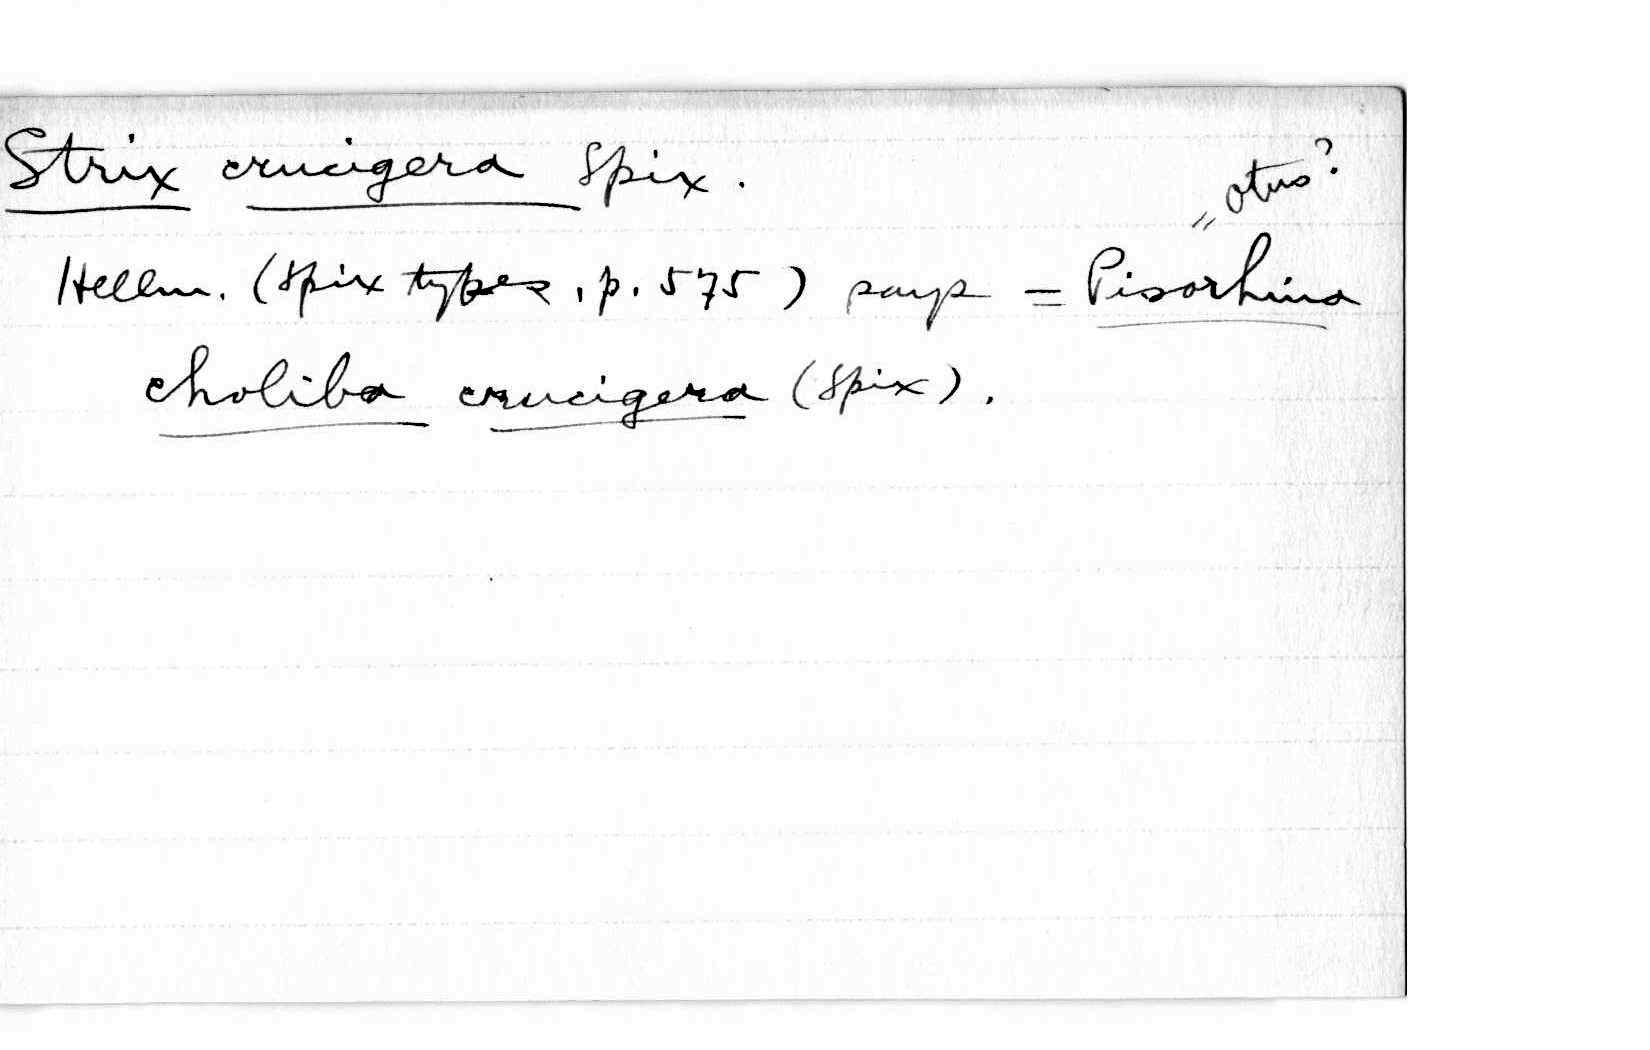 Strix crucigera Spix.
" otus?
Hellm. (Spix types, p. 575) says = Pisorhina
choliba crucigera (Spix).